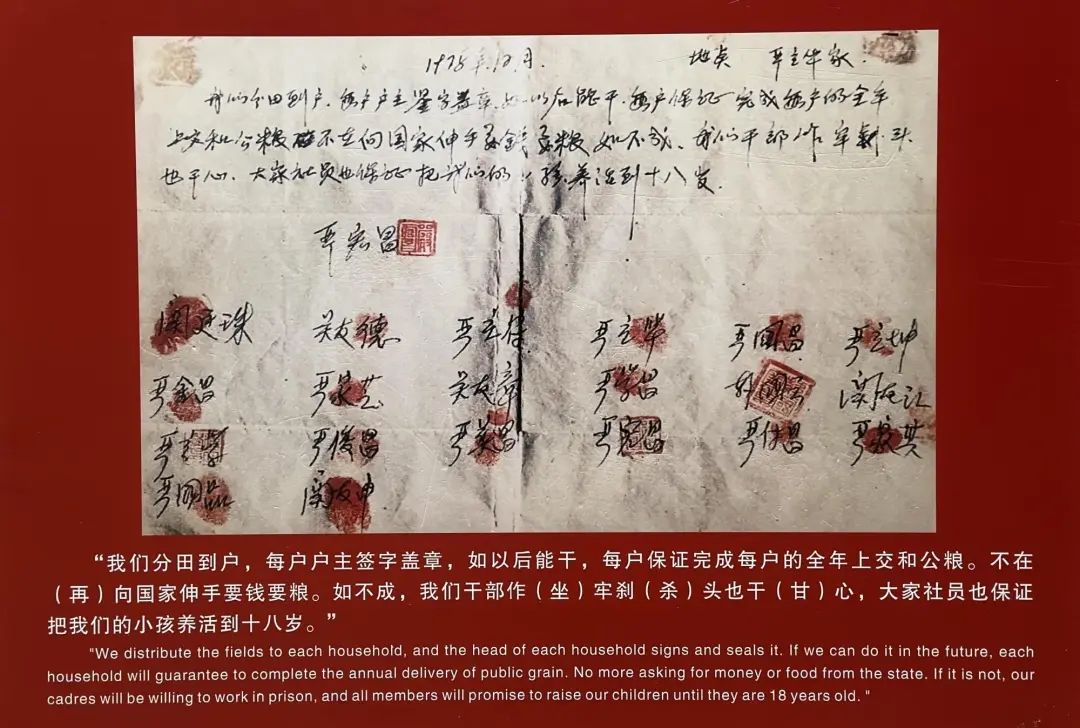 1978年12月. 地点 严立华家.
我们分田到户,每户户主签字盖章,如以后能干,每户保证完成每户的全年
上交和公粮不在向国家伸手要钱要粮如不成,我们干部作牢刹头
也干心,大家社员也保证把我们的小孩养活到十八岁.
严宏昌
关廷珠 关友德 严立符 严立华 严国昌 严立坤
严金昌 严家芝 关友章 严学昌 韩国云 关友江
严立学 严俊昌 严美昌 严宏昌 严付昌 严家其
严国品 关友申
“我们分田到户，每户户主签字盖章，如以后能干，每户保证完成每户的全年上交和公粮。不在
（再）向国家伸手要钱要粮。如不成，我们干部作（坐）牢刹（杀）头也干（甘）心，大家社员也保证
把我们的小孩养活到十八岁。”
"We distribute the fields to each household, and the head of each household signs and seals it. If we can do it in the future, each
household will guarantee to complete the annual delivery of public grain. No more asking for money or food from the state. If it is not, our
cadres will be willing to work in prison, and all members will promise to raise our children until they are 18 years old. "